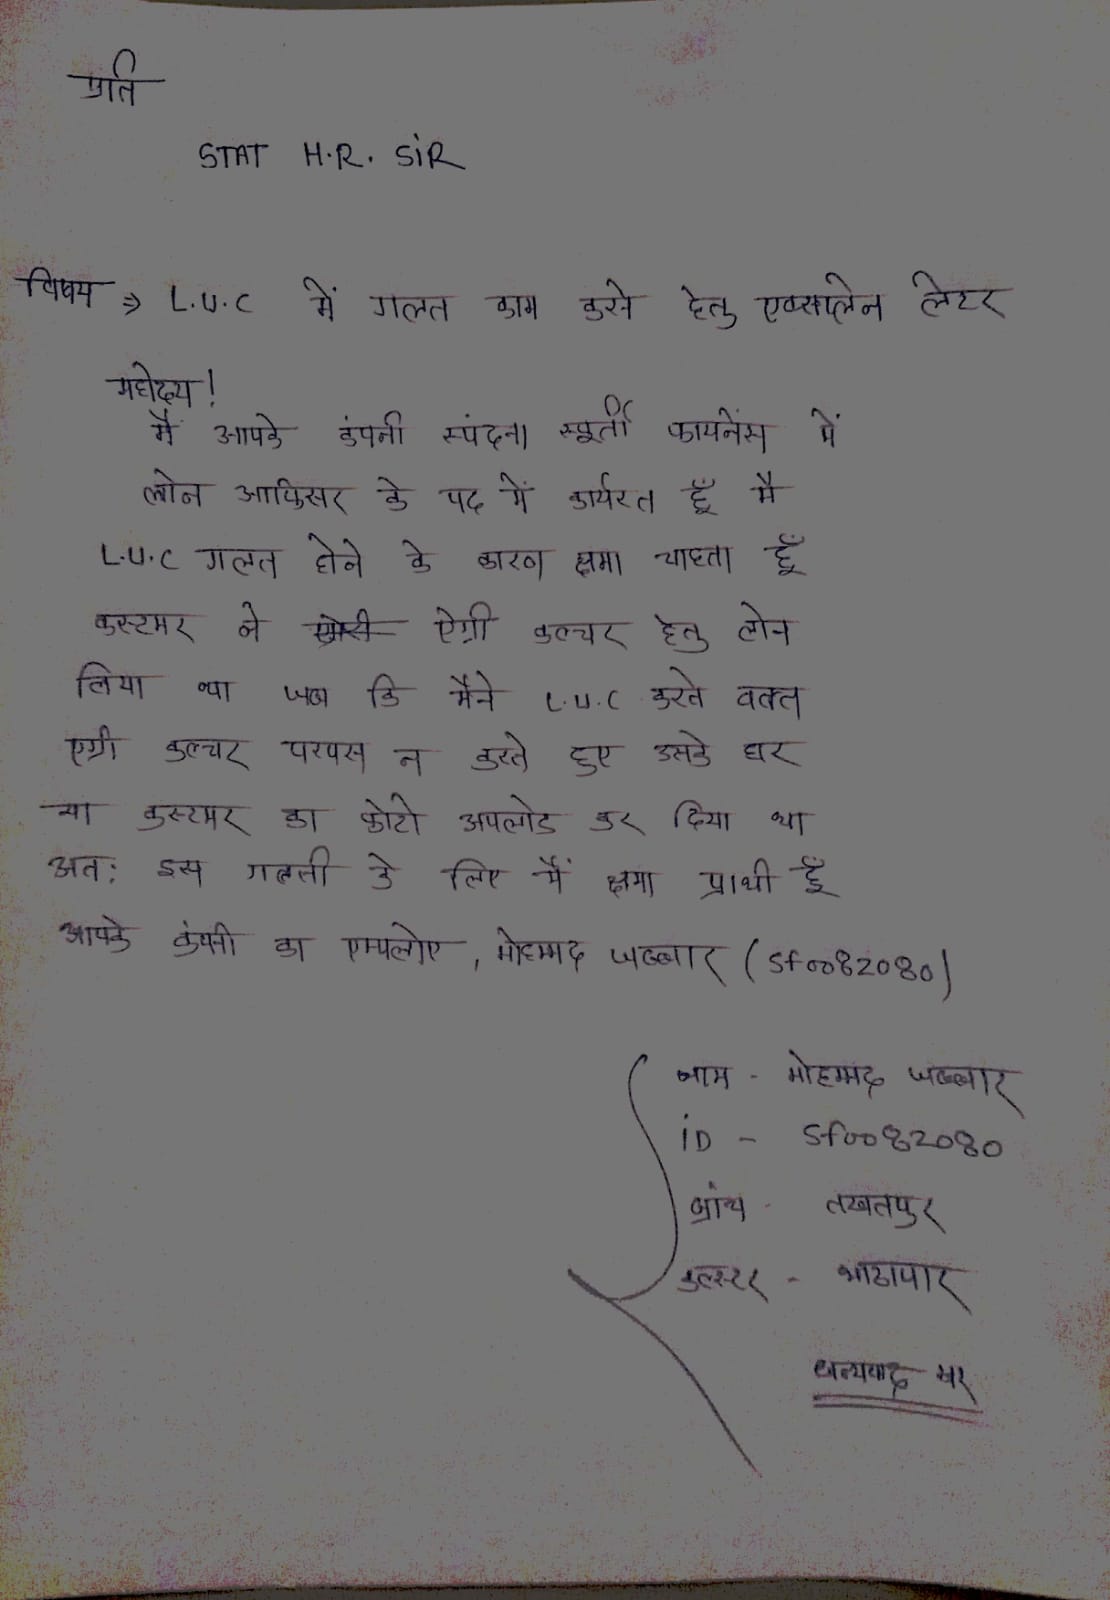 प्रति
STAT H.R. SIR
विषय ⇒ L.U.C में गलत काम करने हेतु एक्सप्लेन लेटर
महोदय!
मैं आपके कंपनी स्पंदना स्फूर्ती फायनेंस में
लोन आफिसर के पद में कार्यरत हूँ मै
L.U.C गलत होने के कारण क्षमा चाहता हूँ
कस्टमर ने ऐग्री कल्चर हेतु लोन
लिया था जब कि मैंने L.U.C करते वक्त
एग्री कल्चर परपस न करते हुए उसके घर
या कस्टमर का फोटो अपलोड कर दिया था
अतः इस गलती के लिए मैं क्षमा प्राथी हूँ
आपके कंपनी का एम्पलोए, मोहम्मद जब्बार (Sf0082080)
नाम - मोहम्मद जब्बार
iD - Sf0082080
ब्रांच - तखतपुर
कलस्टर - भाटापार
धन्यवाद सर